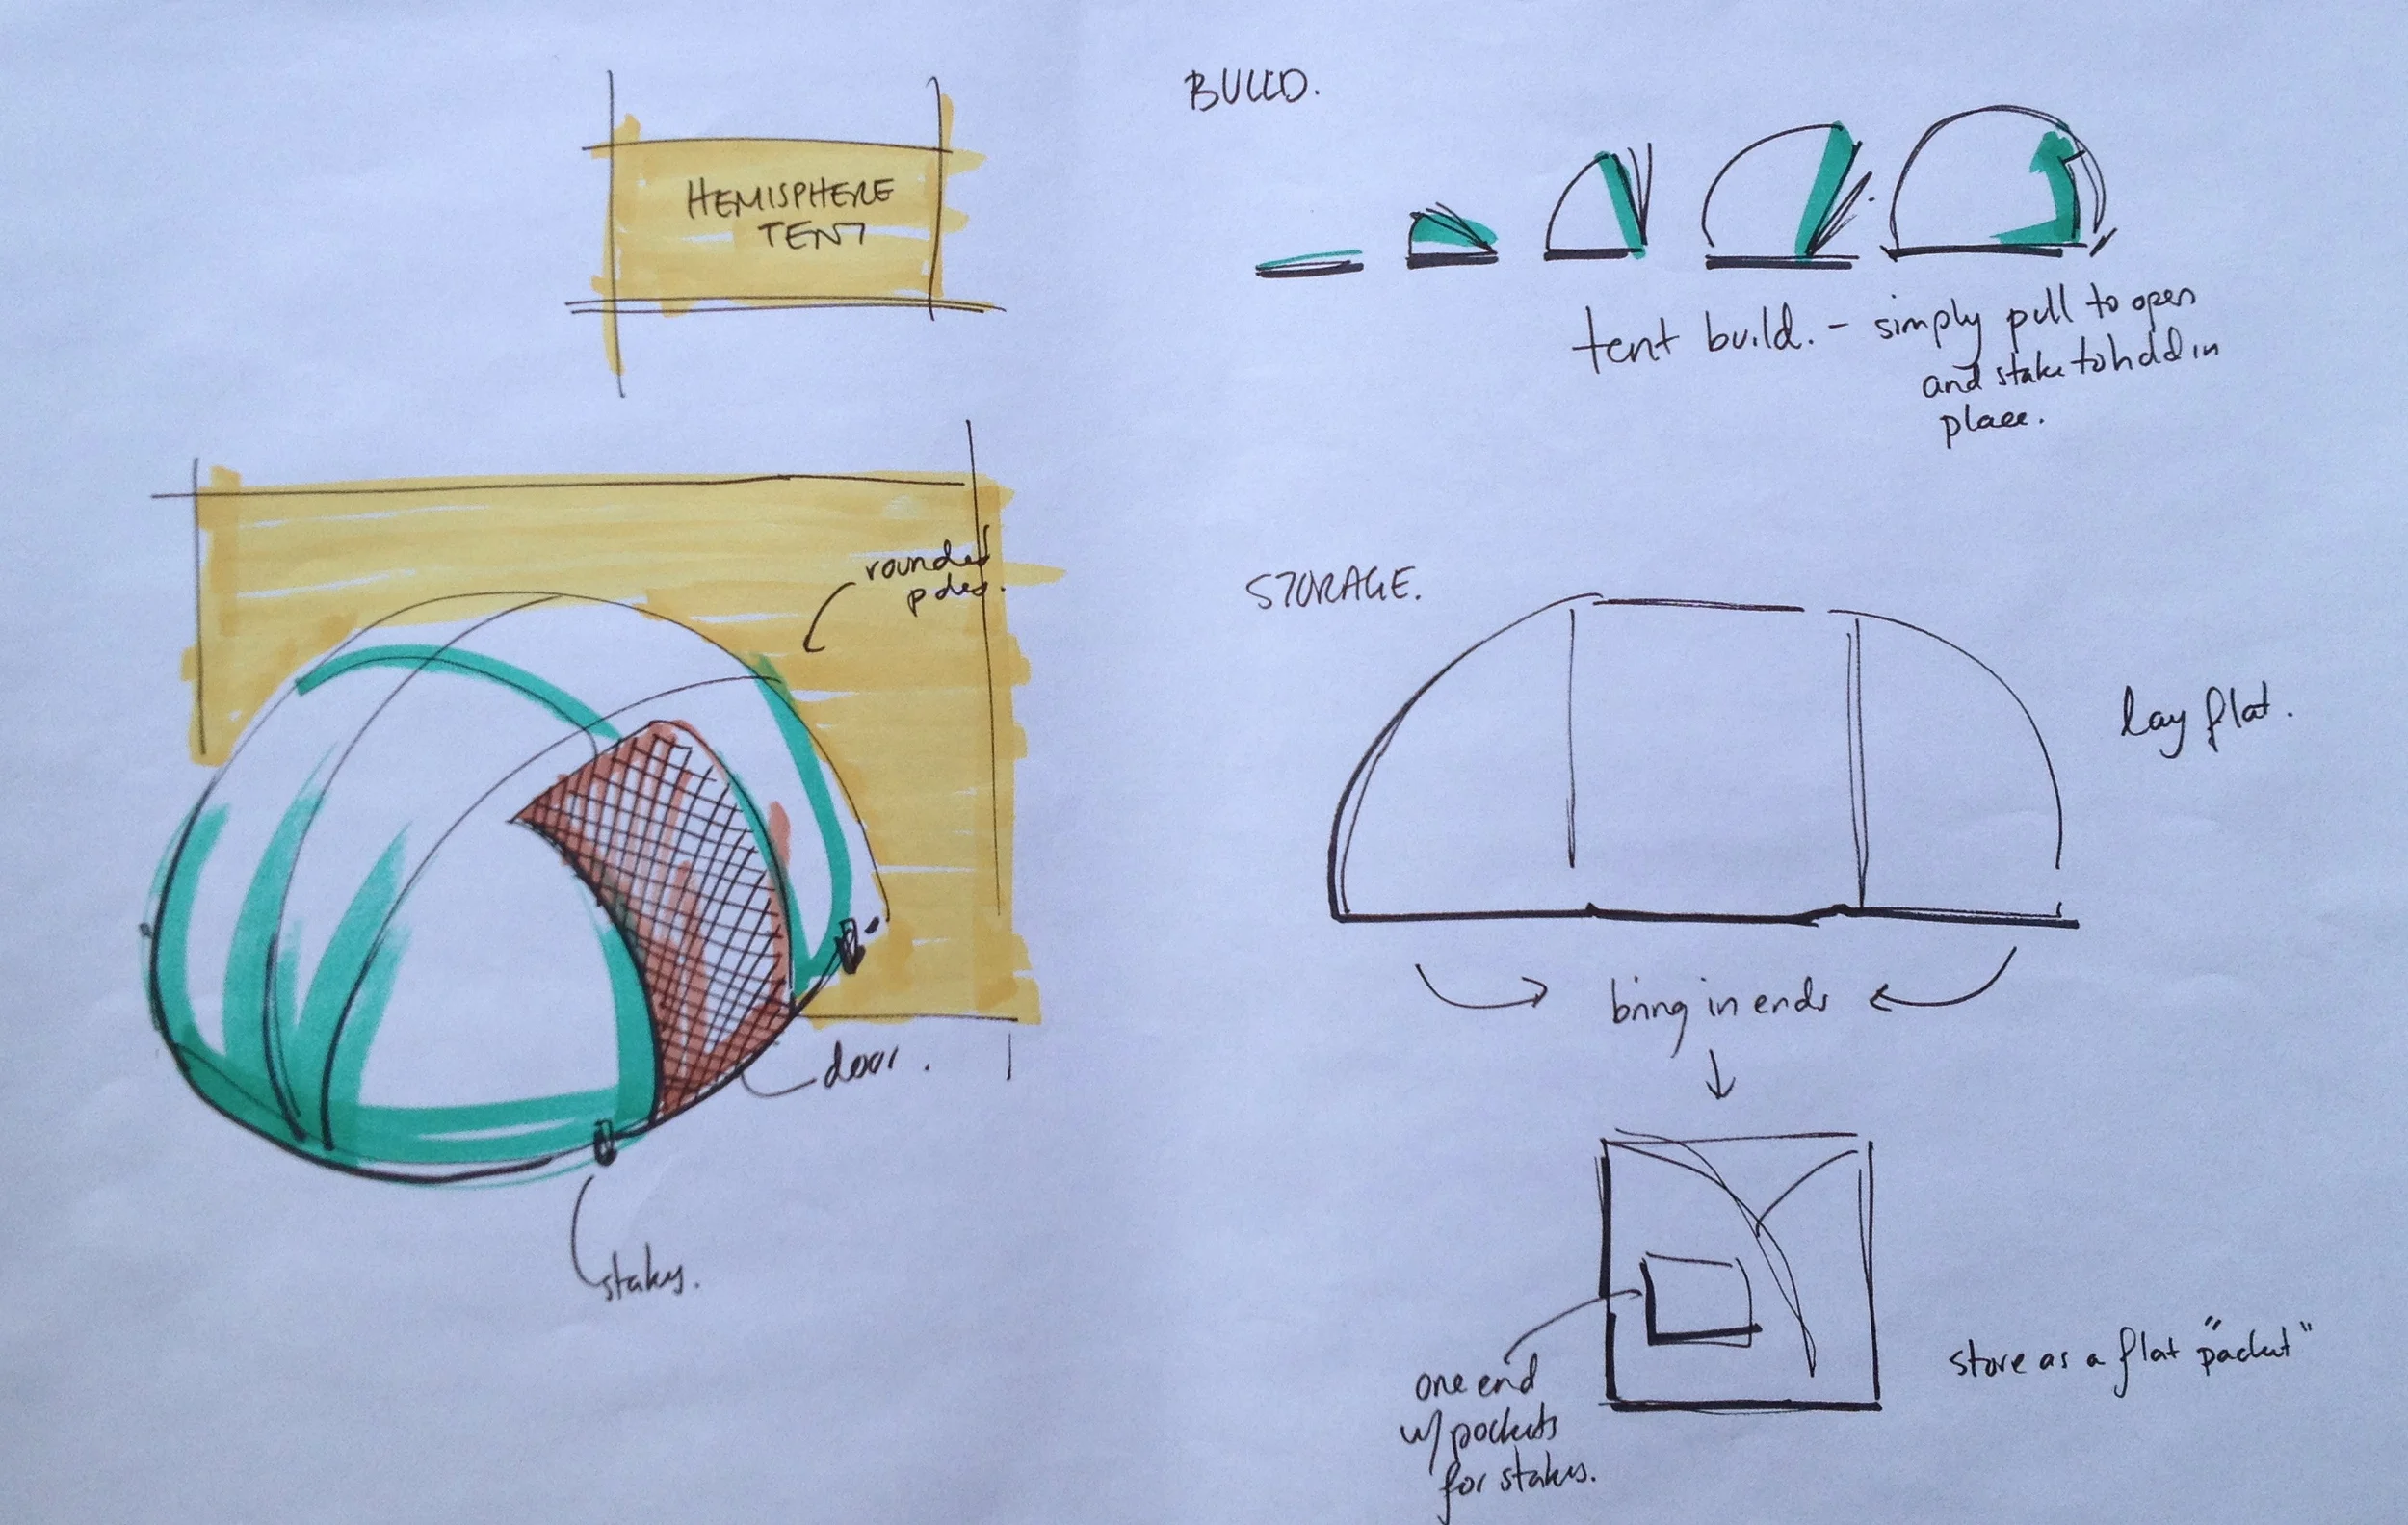 HEMISPHERE
TENT
rounded
poles.
door.
stakes.
BUILD.
tent build. - simply pull to open
and stake to hold in
place.
STORAGE.
lay flat.
bring in ends
one end
w/ pockets
for stakes.
store as a flat "packet"